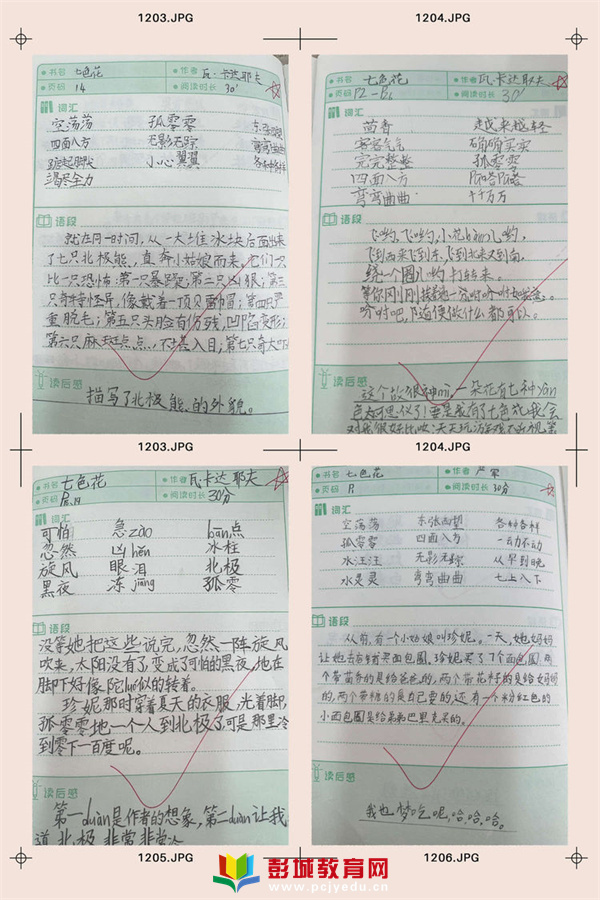 1203.JPG
1204.JPG
书名 七色花
作者 瓦·卡达耶夫
页码 14
阅读时长 30'
词汇
空荡荡 孤零零
四面八方 无影无踪 弯弯曲曲
踮起脚尖 小心翼翼 各种各样
竭尽全力
语段
就在同一时间,从一大堆冰块后面出来
了七只北极熊,直奔小姑娘而来,它们一只
比一只恐怖:第一只暴躁;第二只凶狠;第三
只奇装怪异,像戴着一顶贝雷帽;第四只严
重脱毛;第五只头脸首伤残,凹陷变形;
第六只麻斑点点,不堪入目;第七只奇大
读后感
描写了北极熊的外貌。
书名 七色花
作者 瓦·卡达耶夫
页码
阅读时长 30'
词汇
茴香 越来越轻
客客气气 确确实实
完完整整 孤零零
四面八方
弯弯曲曲 千千万万
语段
飞哟,飞哟,小花bàn儿哟,
飞到西来飞到东,飞到北来又到南,
绕一个圈儿哟,打转来。
等你刚刚挨着地——
吩咐吧,随便做什么都可以。
读后感
这个故很神mì,一朵花有七种yán
色
1203.JPG
1204.JPG
书名 七色花
作者 瓦卡达耶夫
页码
阅读时长 30分
词汇
可怕 急zào bān点
忽然 凶hěn 冰柱
旋风 眼泪 北极
黑夜 冻jiāng 孤零
语段
没等她把这些说完,忽然一阵旋风
吹来,太阳没有了,变成了可怕的黑夜,地在
脚下好像陀luó似的转着。
珍妮那时穿着夏天的衣服,光着脚,
孤零零地一个人到北极了,可是那里冷
到零下一百度呢。
读后感
第一duàn是作者的想象,第二duàn让我
道北极非常非常冷
书名 七色花
作者
页码
阅读时长 30分
词汇
空荡荡 东张西望 各种各样
孤零零 四面八方 一动不动
水汪汪 无影无踪 从早到晚
水灵灵 弯弯曲曲 七上八下
语段
从前,有一个小姑娘叫珍妮。一天,她妈妈
让她去商店买面包圈。珍妮买了7个面包圈,两
个带茴香的是给爸爸的,两个带花籽的是给妈妈
的,两个带糖的是自己要的,还有一个粉红色的
小面包圈是给弟弟巴里克买的。
读后感
我也梦吃呢,哈,哈,哈。
1205.JPG
1206.JPG
彭城教育网
www.pcjyedu.cn